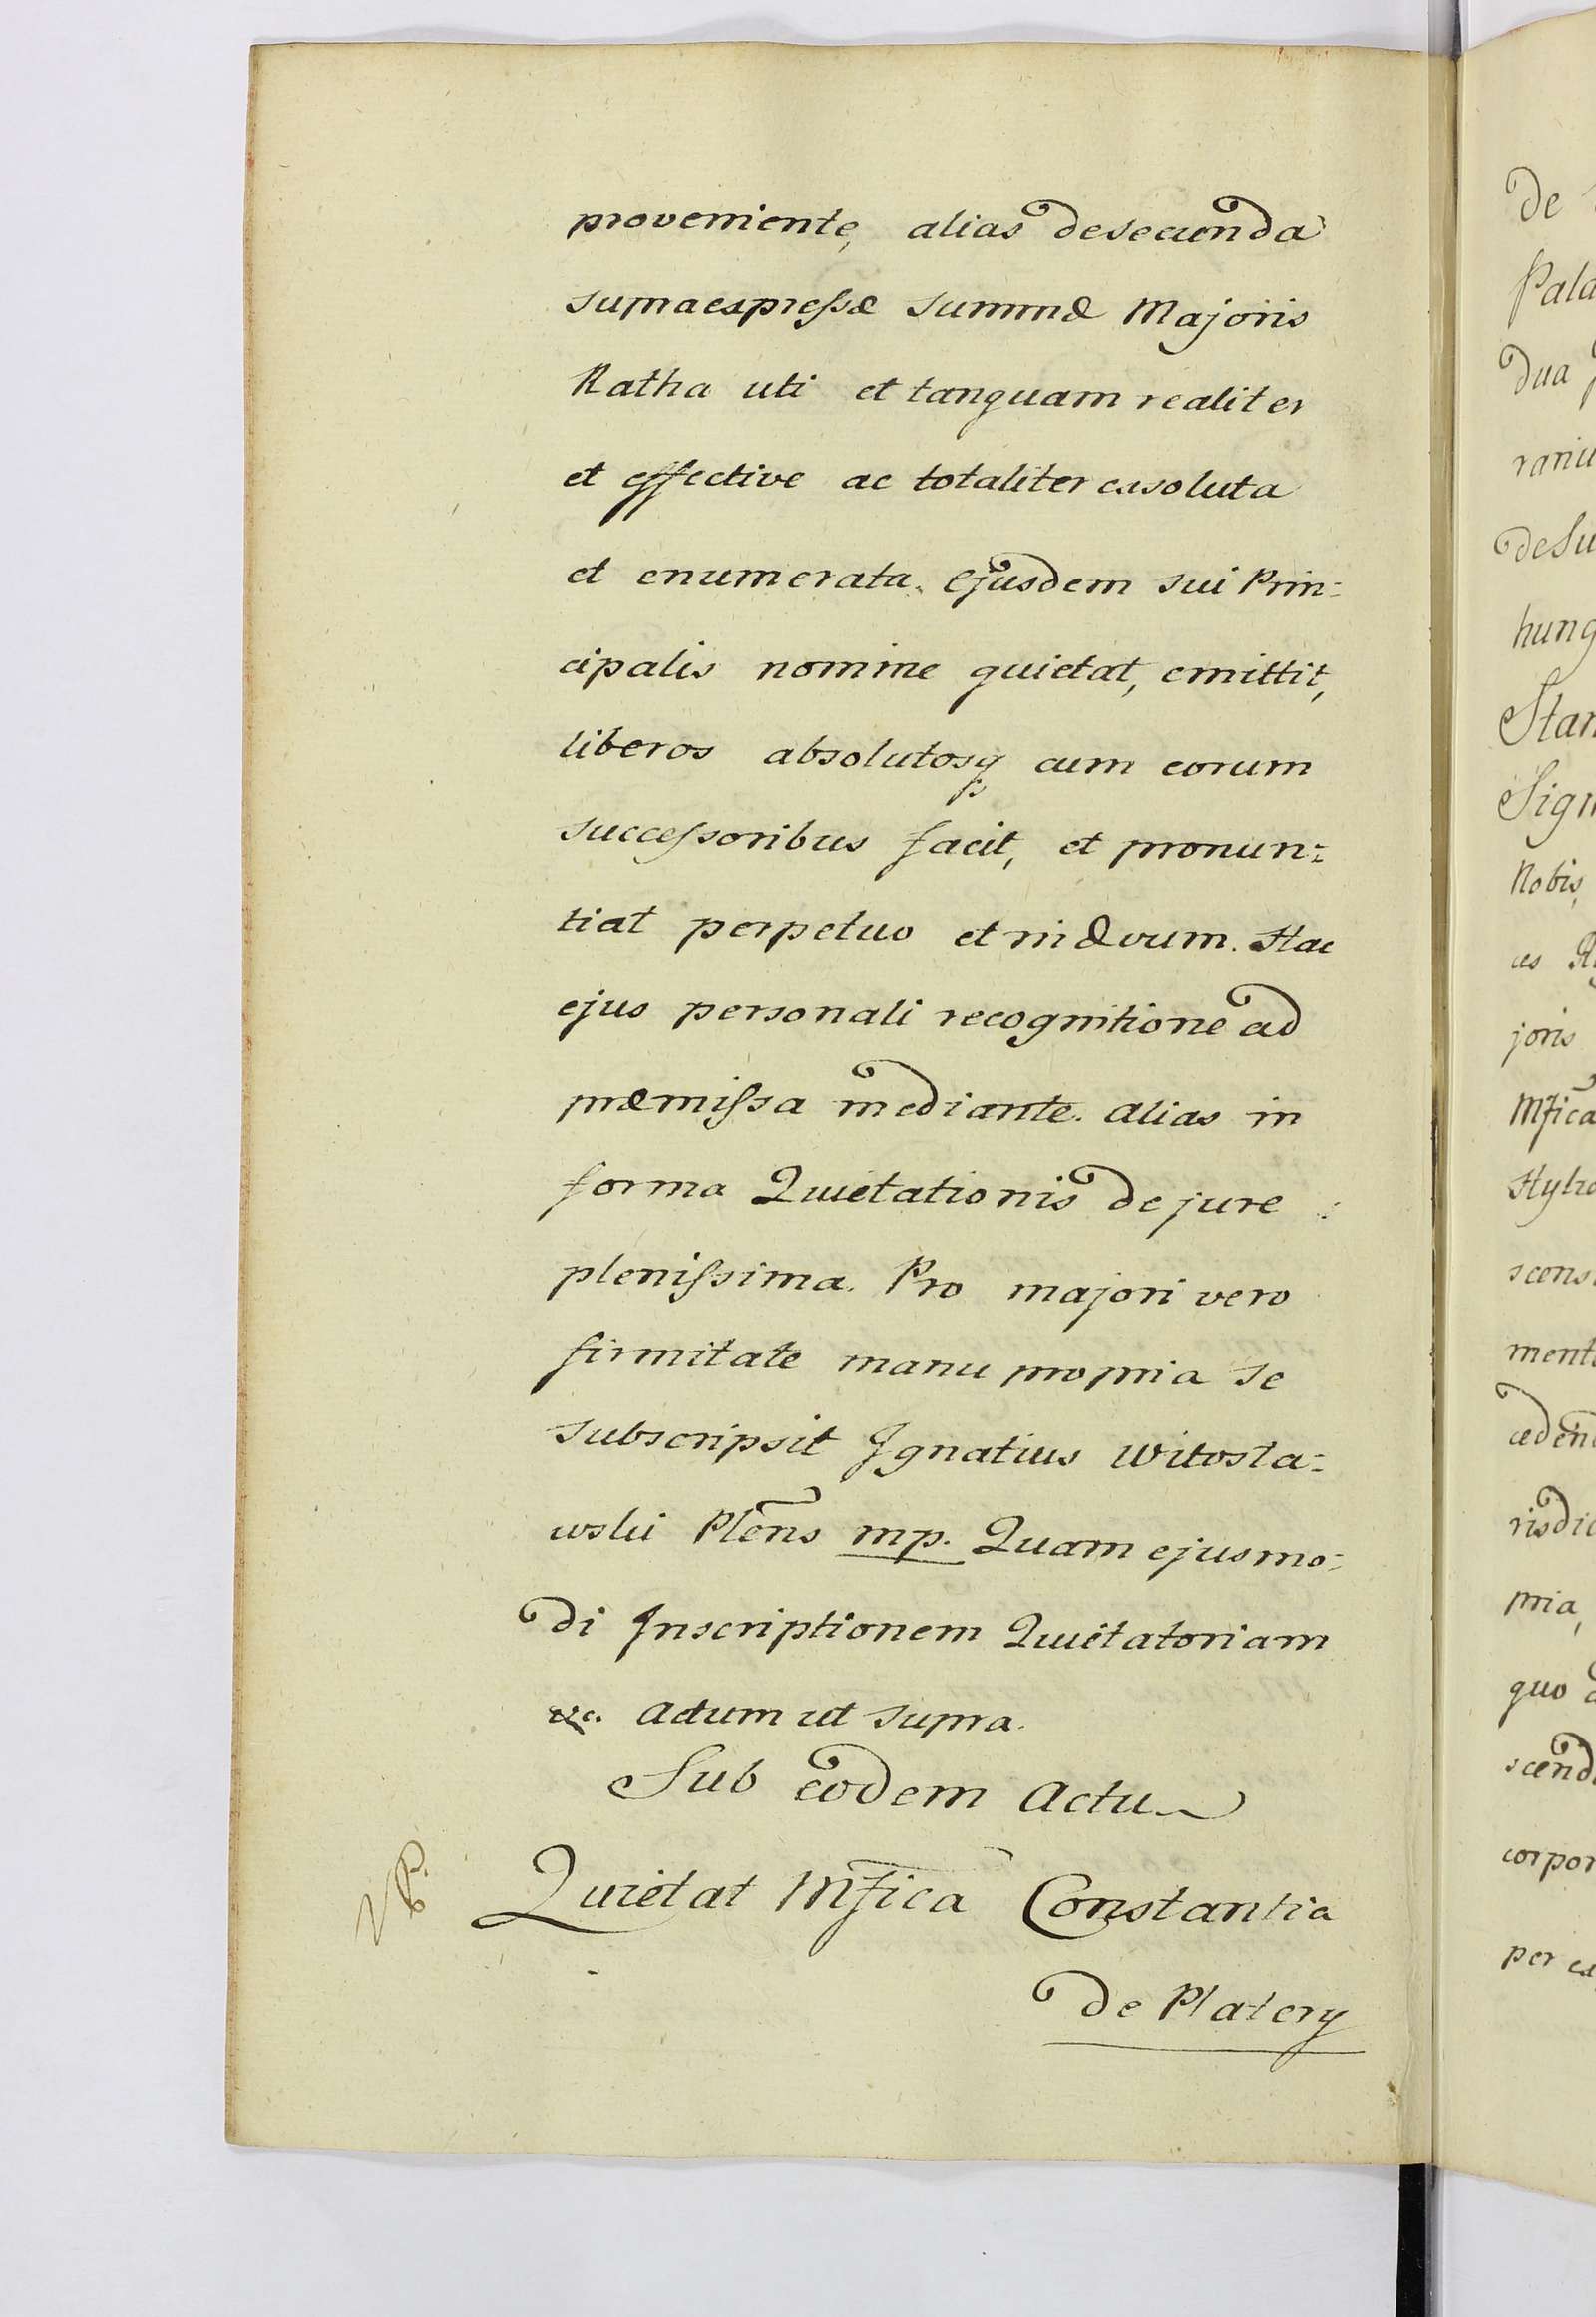 proveniente, alias de secunda
supraexpressæ summæ Majoris
Ratha uti et tanquam realiter
et effective ac totaliter exsoluta
et enumerata. Ejusdem sui Prin=
cipalis nomine quietat, emittit,
liberos absolutosq cum eorum
successoribus facit, et pronun=
tiat perpetuo et in ævum. Hac
ejus personali recognitione ad
præmissa mediante. alias in
forma Quietationis de jure
plenissima. Pro majori vero
firmitate manu propria se
subscripsit Ignatius Witosła=
wski Plens mp. Quam ejusmo=
di Inscriptionem Quietatoriam
&c. Actum ut supra.
Sub eodem Actu
Quietat Mfica Constantia
de Platery
de
Pala
dua
raniu
de Su
hung
Stan
Sign
Nobis,
joris
Mfica
mento
risdic
pria,
quo
scend
corpor
per ex